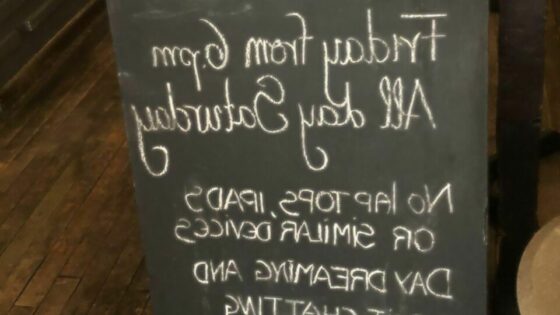 Friday from 6pm
All day Saturday
NO LAPTOPS, IPADS
OR SIMILAR DEVICES
DAY DREAMING AND
CHATTING